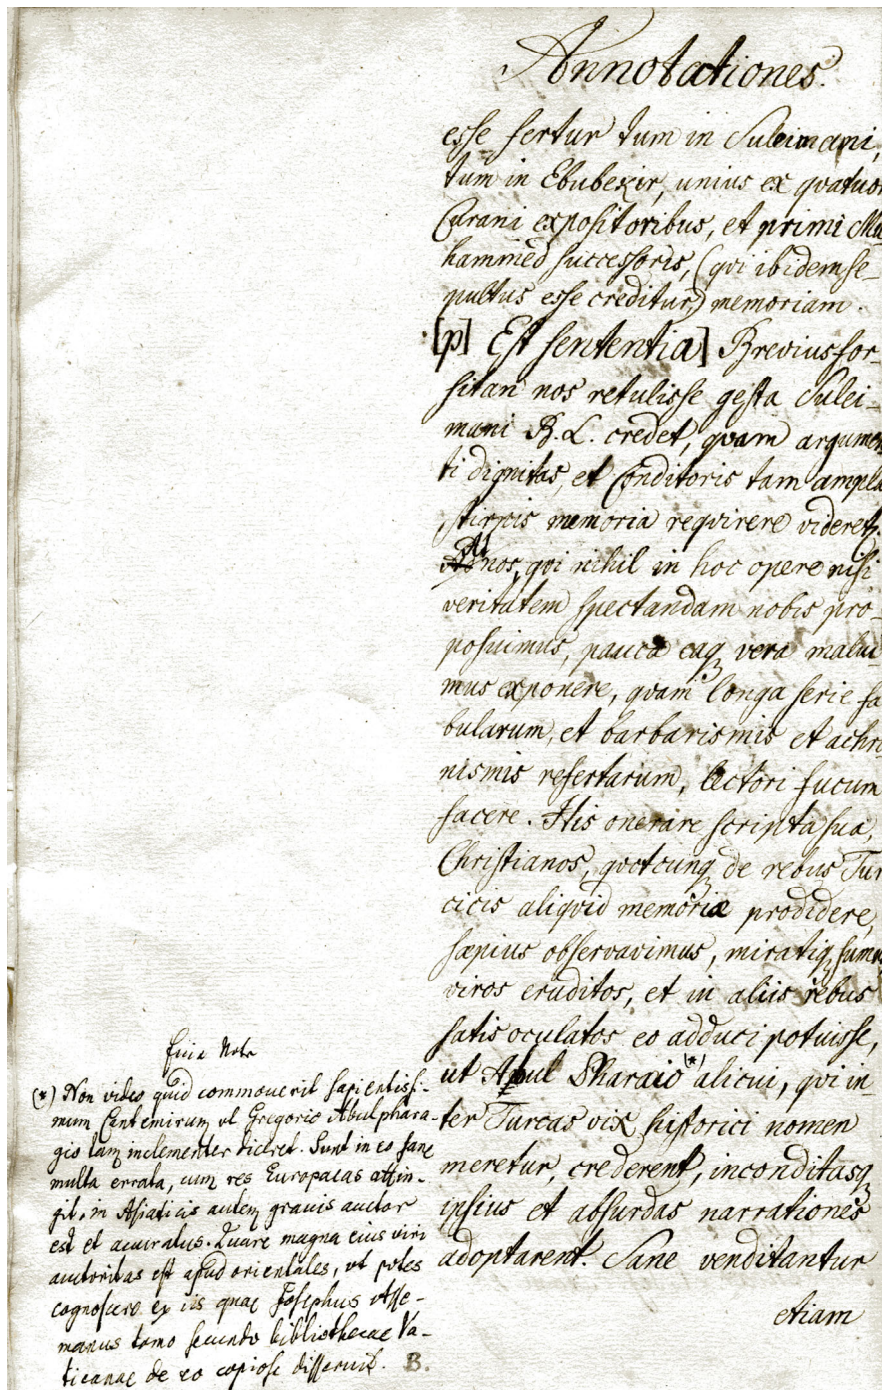 Annotationes.
esse fertur tum in Suleimani,
tum in Ebubekir, unius ex qvatuor
Curani expositoribus, et primi Mu
hammed successoris, (qvi ibidem se-
pultus esse creditur,) memoriam.
[p] Est sententia] Brevius for-
sitan nos retulisse gesta Sulei-
mani B. L. credet, qvam argumen
ti dignitas, et Conditoris tam ampla
stirpis memoria reqvirere videretr.
At nos, qvi nihil in hoc opere nisi
veritatem spectandam nobis pro-
posuimus, pauca eaq vera malui
mus exponere, qvam longa serie fa
bularum, et barbarismis et achro
nismis refertarum, lectori fucum
facere. His onerare scripta sua,
Christianos, qvotcunq de rebus Tur
cicis aliqvid memoriæ prodidere,
sæpius observavimus, miratiq sumus
viros eruditos, et in aliis rebus
satis oculatos eo adduci potuisse,
ut Apul Pharaio (*) alicui, qvi in-
ter Turcas vix historici nomen
meretur, crederent, inconditasq
ipsius et absurdas narrationes
adoptarent. Sane venditantur
etiam
Nota
(*) Non video quid commoverit sapientissi-
mum Cantemirum ut Gregorio Abulphara-
gio tam inclementer diceret. Sunt in eo sane
multa errata, cum res Europaeas attin-
git, in Asiaticis autem gravis auctor
est et accuratus. Quare magna eius viri
auctoritas est apud orientales, ut potes
cognoscere ex iis quae Josephus Asse-
manus tomo secundo bibliothecae Va-
ticanae de eo copiose disseruit. B.